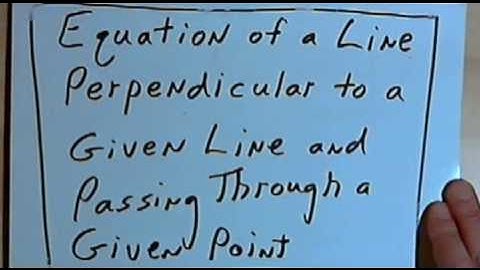 Equation of a Line
Perpendicular to a
Given Line and
Passing Through a
Given Point